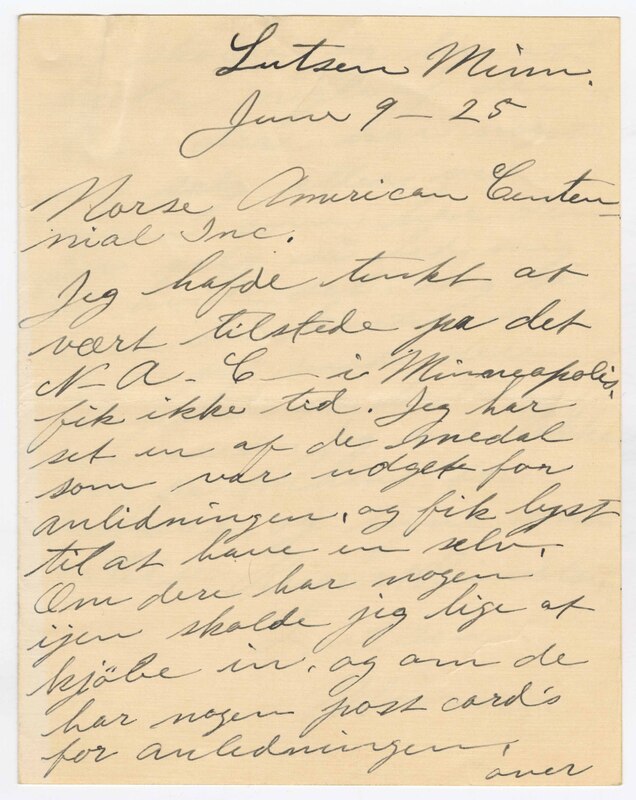 Lutsen Minn.
June 9 - 25
Norse American Centen-
nial Inc.
Jeg hafde tenkt at
vært tilstede pa det
N - A - C - i Minneapolis,
fik ikke tid. Jeg har
set en af de medal
som var udget for
anlidningen, og fik lyst
til at have en selv.
Om dere har nogen
ijen skolde jeg lige at
kjöbe in. og om de
har nogen post card's
for anledningen,
over